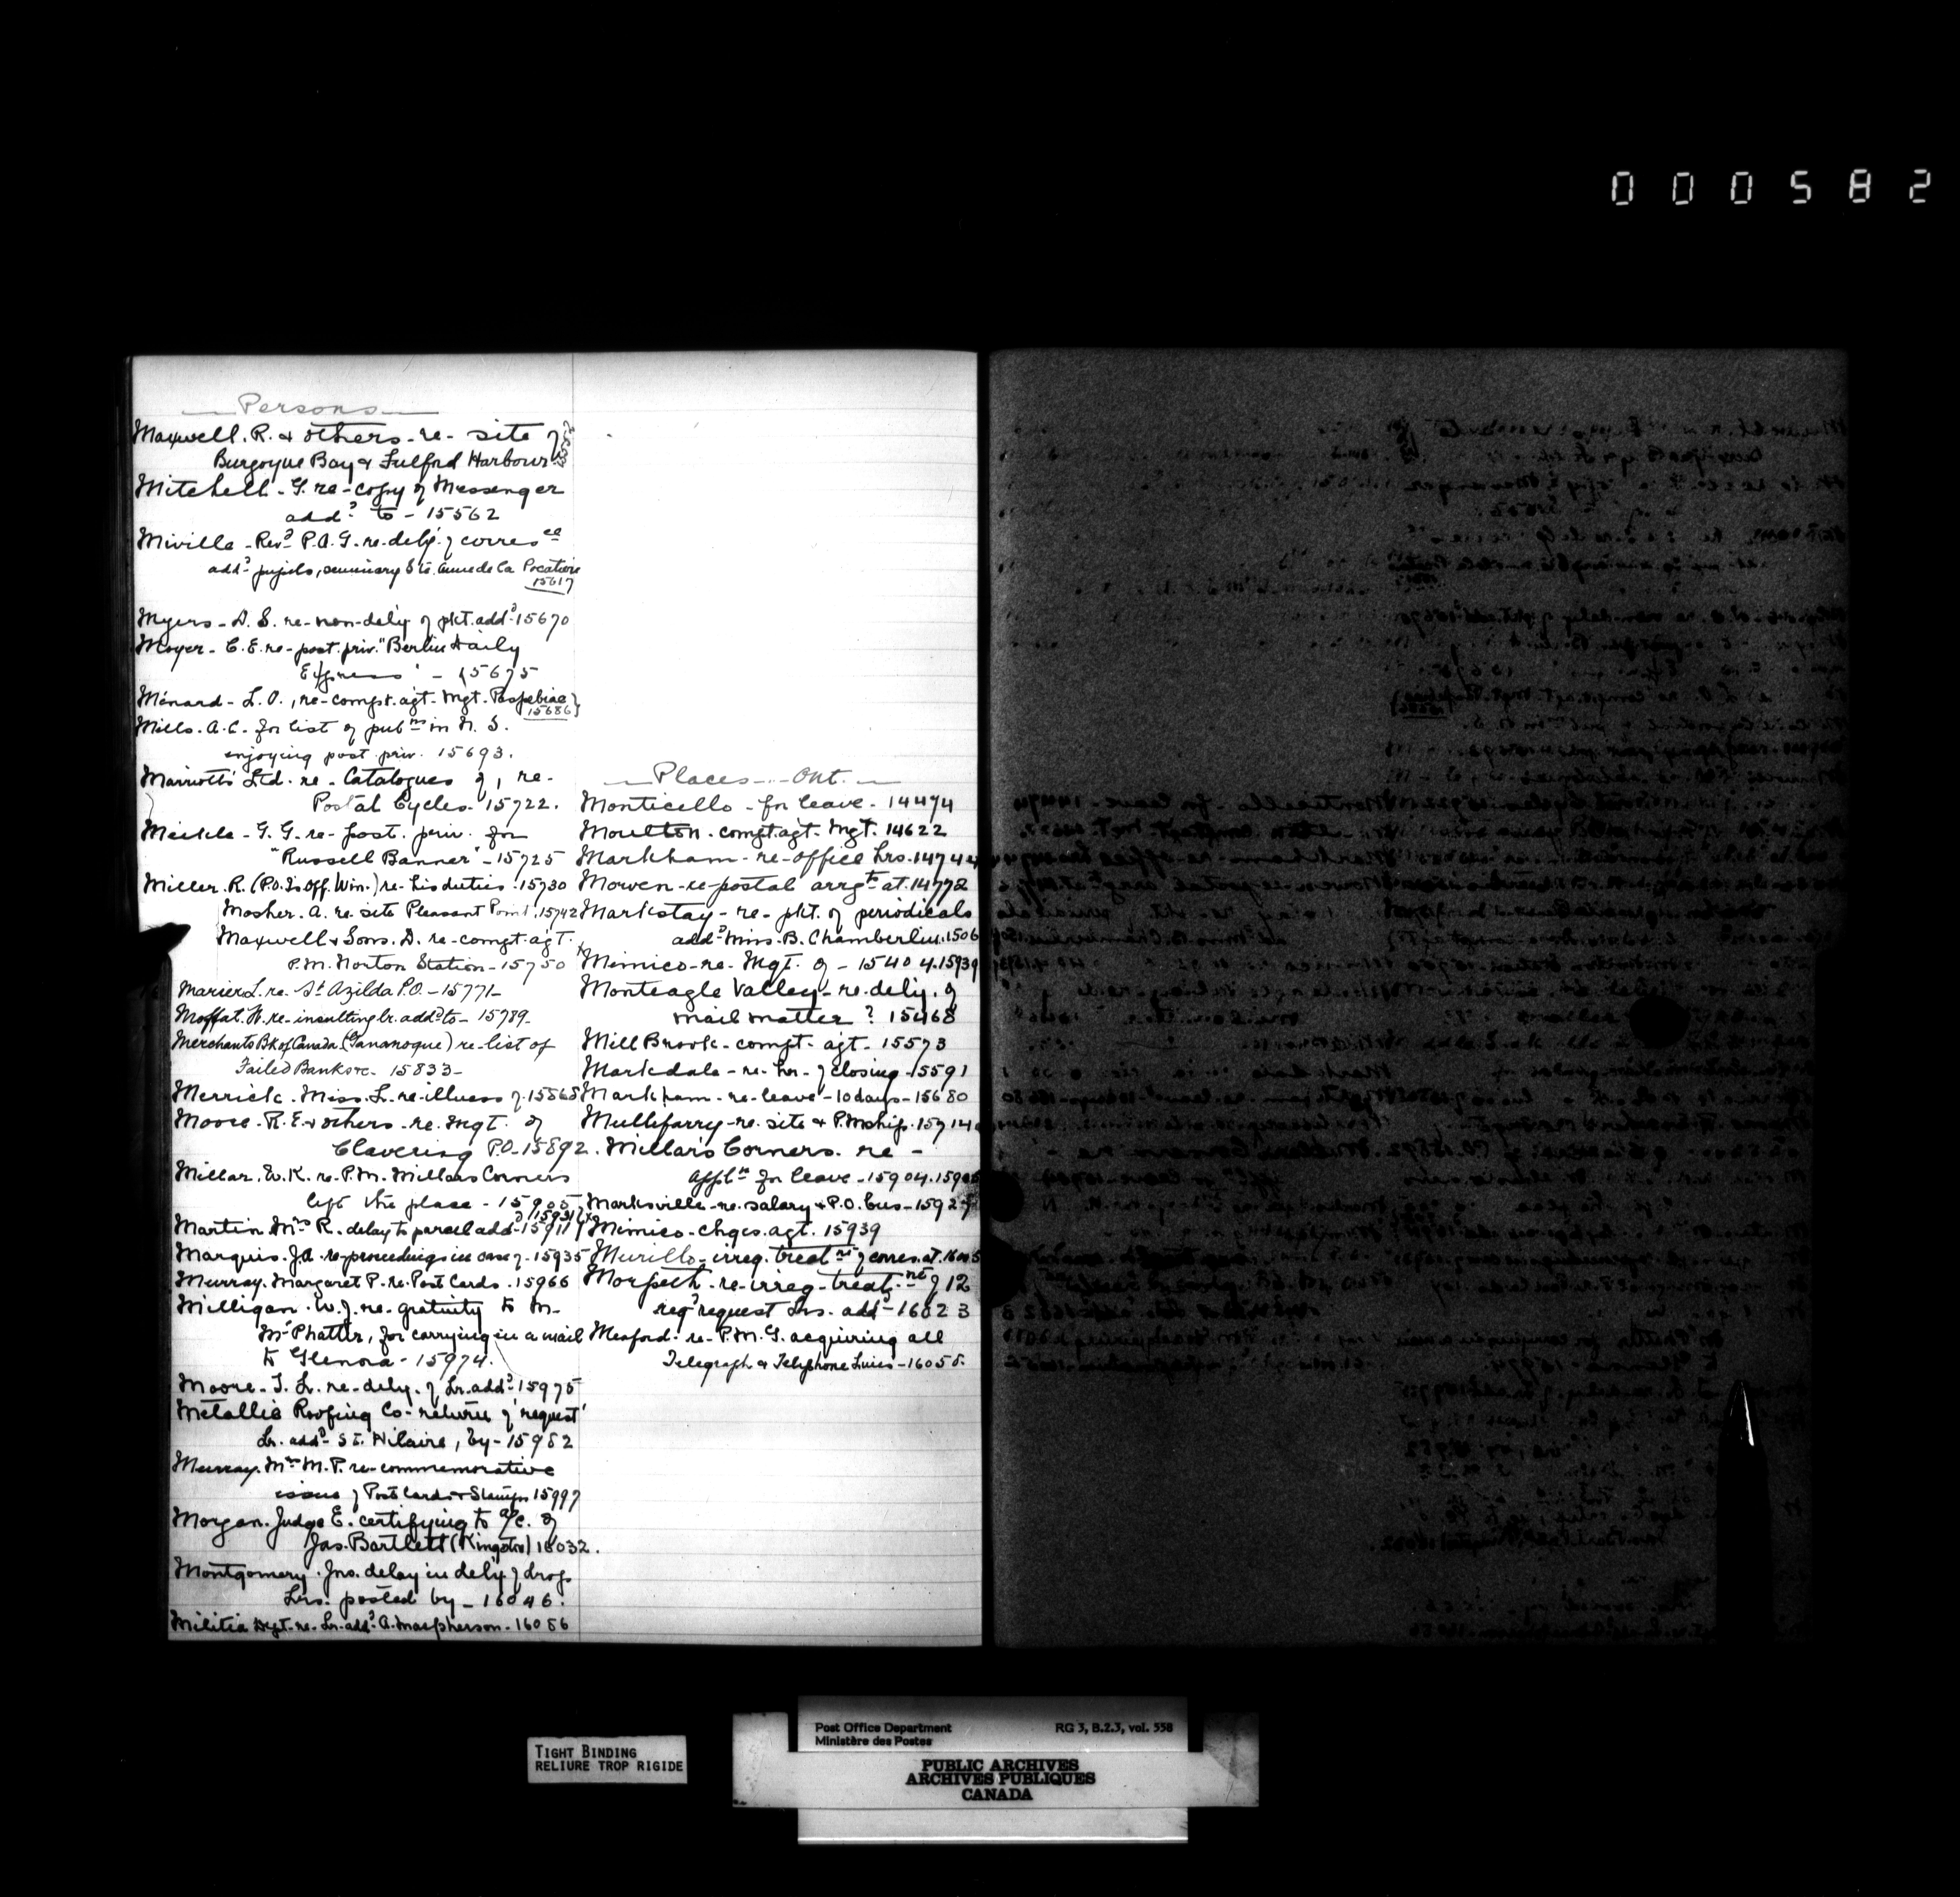 000582
Persons
Maxwell. R. & others - re - site of
Burgoyne Bay & Fulford Harbour
Mitchell - G. re - copy of Messenger
addd to - 15562
Miville - Revd P.A.G. re - dely. of corresce
addd pupils, seminary Ste. Anne de la Pocatiere
15617
Myers - D. S. re - non - dely of pkt. addd 15670
Moyer - C. E. re - post. priv. "Berlin Daily
Express" - 15675
Ménard - L. O., re - compt. agt. Mgt. Paspebiac
15686
Mills. A. C. for list of pubns in N. S.
enjoying post. priv. 15693.
Marriotts Ltd. re - Catalogues of, re -
Postal Cycles. 15722.
Meikle - G. G. re - post. priv. for
"Russell Banner" - 15725
Miller. R. (P.O. Is Off. Win.) re - his duties - 15730
Mosher. A. re site Pleasant Point. 15742
Maxwell & Sons. D. re - compt. agt.
P.M. Norton Station - 15750
Marier L. re. St Azilda P.O. - 15771 -
Moffat. W. re - insulting lr. addd to - 15789 -
Merchants Bk of Canada (Gananoque) re - list of
Failed Banks &c - 15833 -
Merrick. Miss. L. re - illness of - 15865
Moore. R. E. & others - re. Mgt. of
Clavering P.O. 15892.
Millar. W. K. re. P.M. Millars Corners
left the place - 15905
15931
Martin. Mrs R. delay to parcel addd 15911
Marquis. J. A. re - proceedings in case of - 15935
Murray. Margaret P. re. Post Cards. 15966
Milligan. W. J. re. gratuity to M -
McPhatter, for carrying in a mail
to Glenora - 15974.
Moore - T. L. re - dely. of Lr. addd 15975
Metallic Roofing Co - return of 'request'
Lr. addd St. Hilaire, by - 15982
Murray. Mrs M. P. re - commemorative
issue of Post Cards & Stamps 15997
Morgan. Judge E. certifying to a/c. of
Jas. Bartlett (Kingston) 16032.
Montgomery. Jno. delay in dely of drop
Lrs. posted by - 16046.
Militia Dept. re. Lr. addd A. Macpherson - 16056
Places - Ont.
Monticello - for leave - 14474
Moulton - compt. agt. Mgt. 14622
Markham - re - office hrs. 14744
Mowen - re - postal arrgt at. 14772
Markstay - re - pkt. of periodicals
addd Miss. B. Chamberlin. 1506
Mimico - re - Mgt. of - 15404. 15939
Monteagle Valley - re. dely. of
mail matter? 15468
Mill Brook - compt. agt. 15573
Markdale - re - hr. of closing - 15591
Markham - re - leave - 10 days - 15680
Mullifarry - re. site & P.Mship. 15714
Millars Corners. re -
appln for leave - 15904. 15905
Marksville - re. salary & P.O. bus - 15927
Mimico - chges. agt. 15939
Murillo - irreg. treatnt of corres. at. 16005
Morpeth - re - irreg - treatnt of 12
regd request Lrs. addd - 16023
Meaford - re - P.M.G. acquiring all
Telegraph & Telephone Lines - 16055.
TIGHT BINDING
RELIURE TROP RIGIDE
Post Office Department RG 3, B.2.3, vol. 558
Ministère des Postes
PUBLIC ARCHIVES
ARCHIVES PUBLIQUES
CANADA